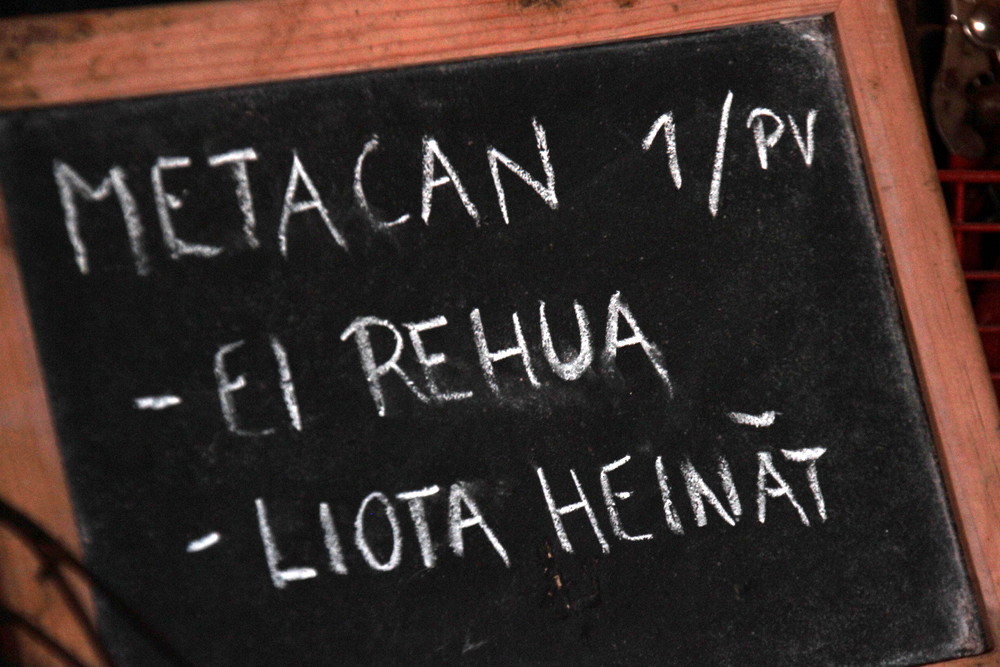 METACAN 1/PV
- EI REHUA
- LIOTA HEINÄT